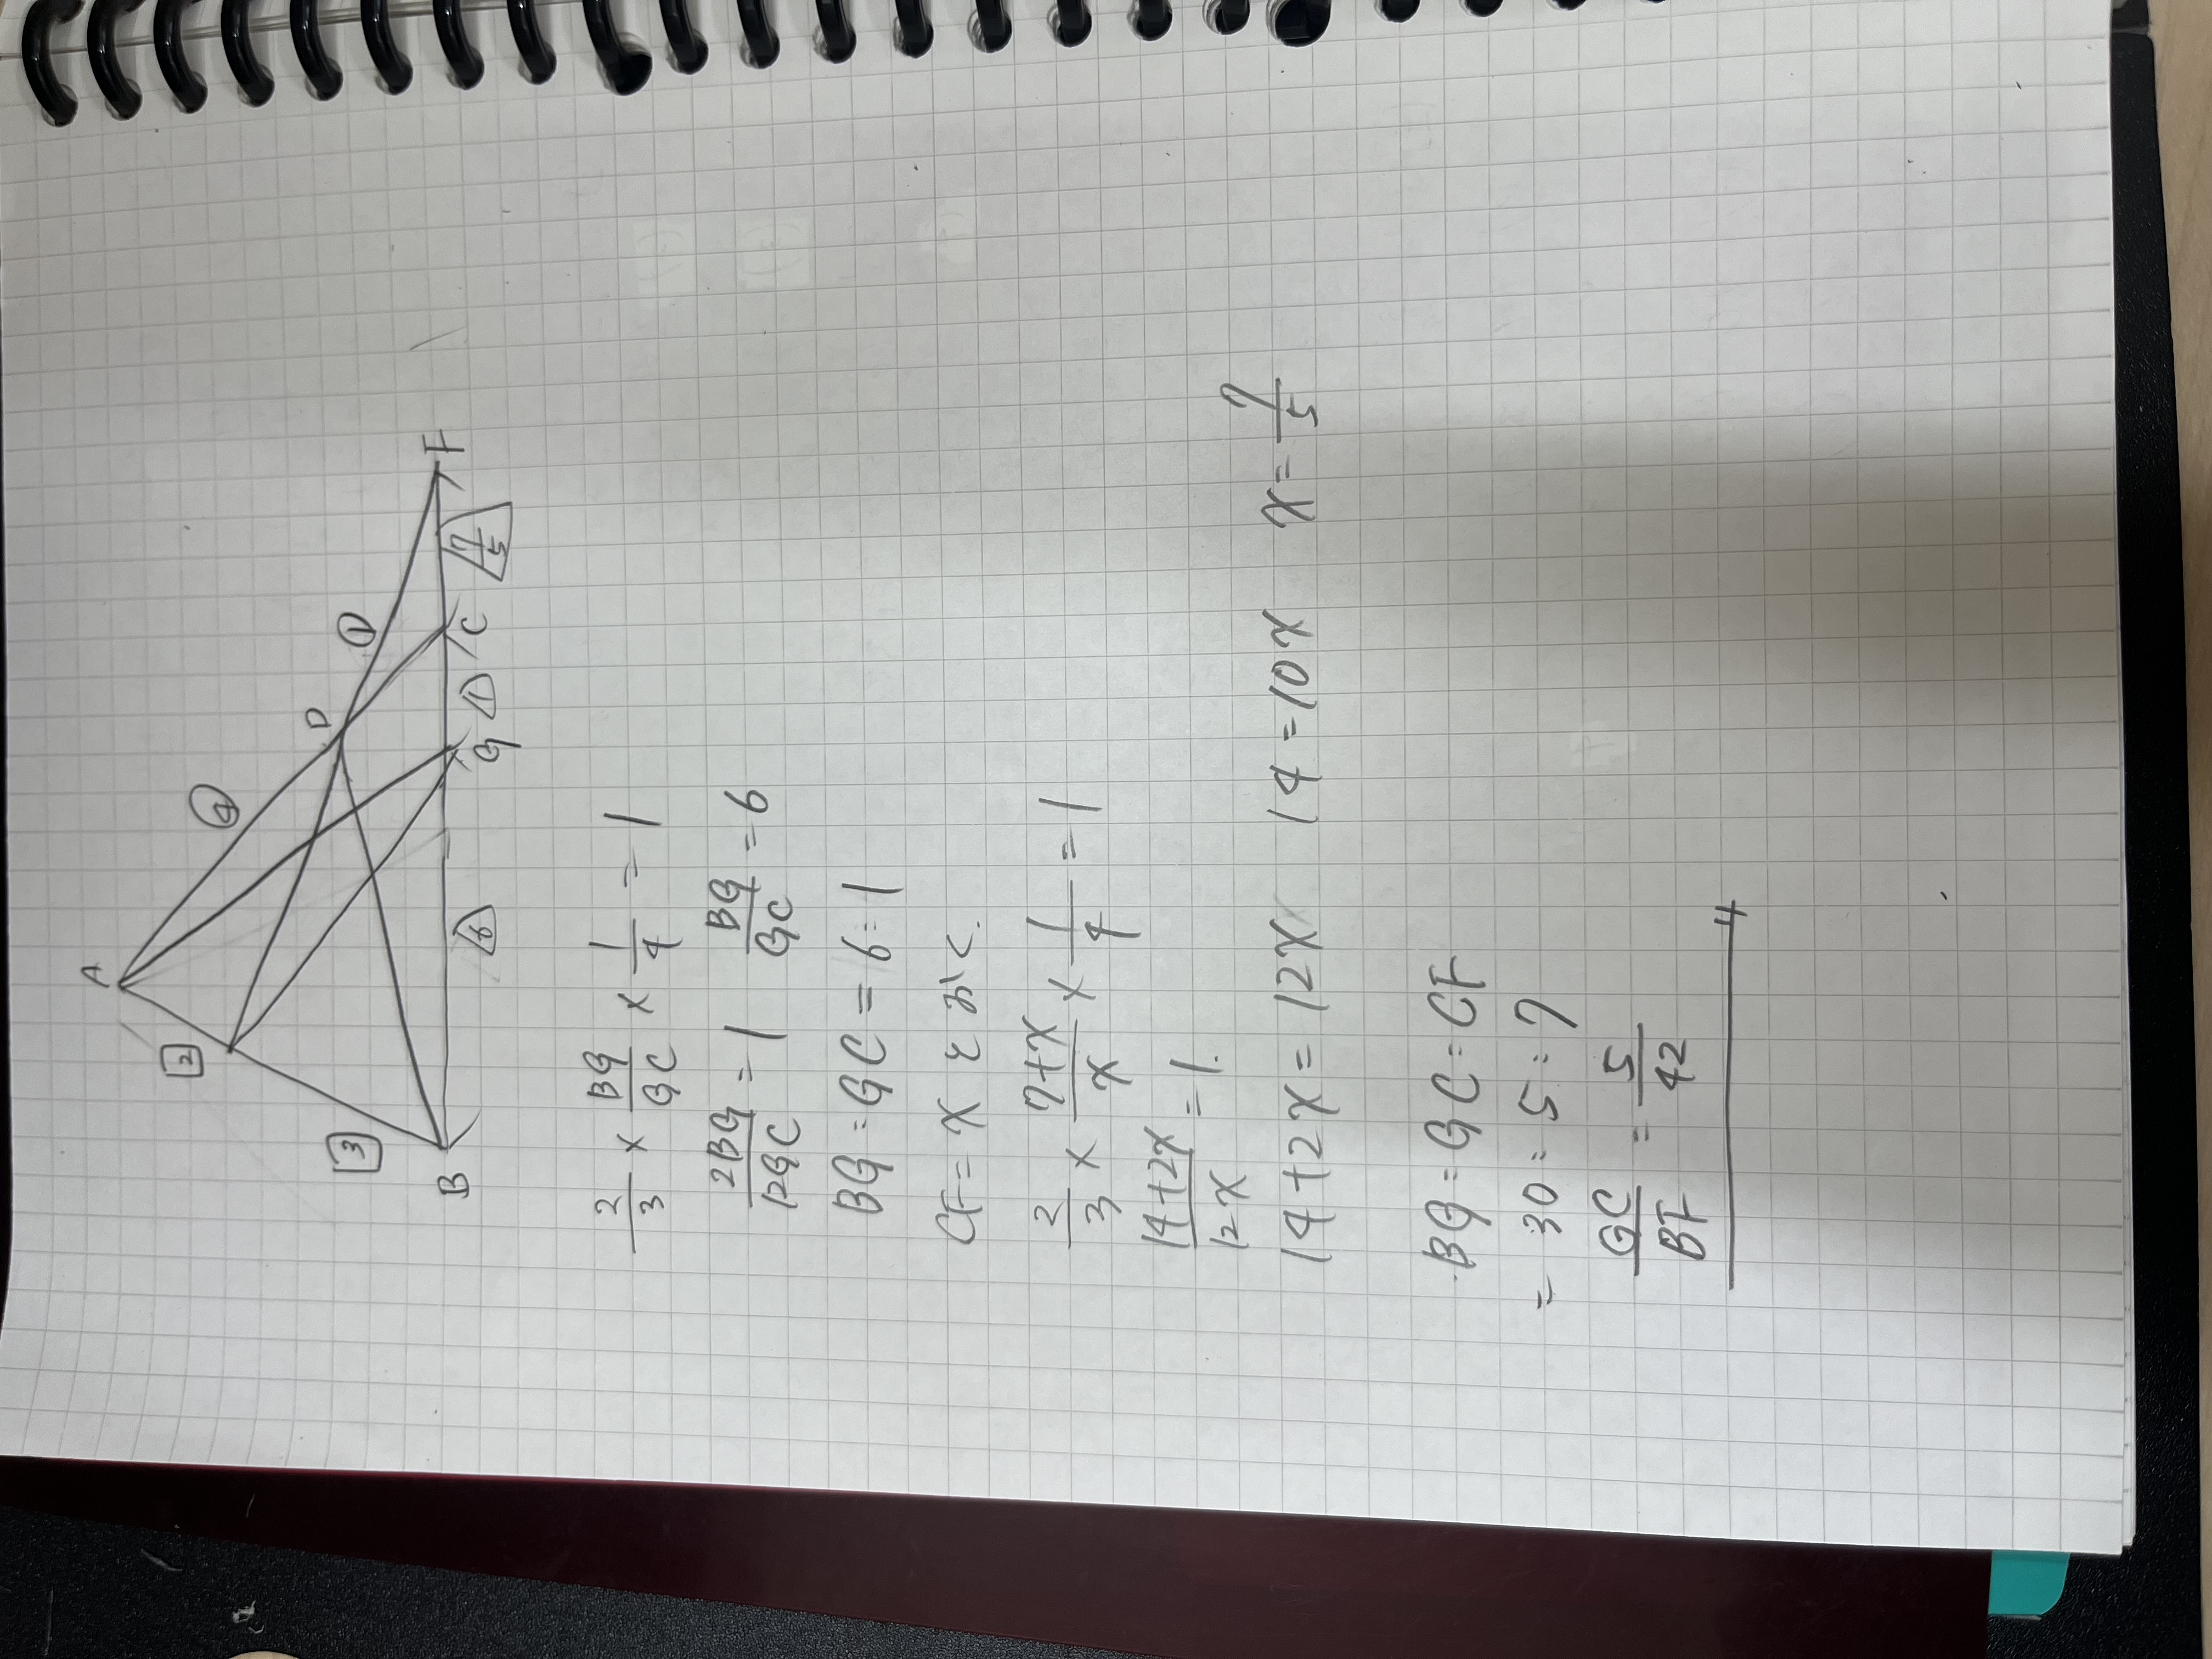 A
④
D
①
F
2
3
B
6
G
1
C
7/5
2/3 × BG/GC × 1/4 = 1
2BG/12GC = 1 BG/GC = 6
BG:GC = 6:1
CF = x とおく.
2/3 × 7+x/x × 1/4 = 1
14+2x/12x = 1.
14+2x = 12x 14 = 10x x = 7/5
BG:GC:CF
= 30:5:7
GC/BF = 5/42